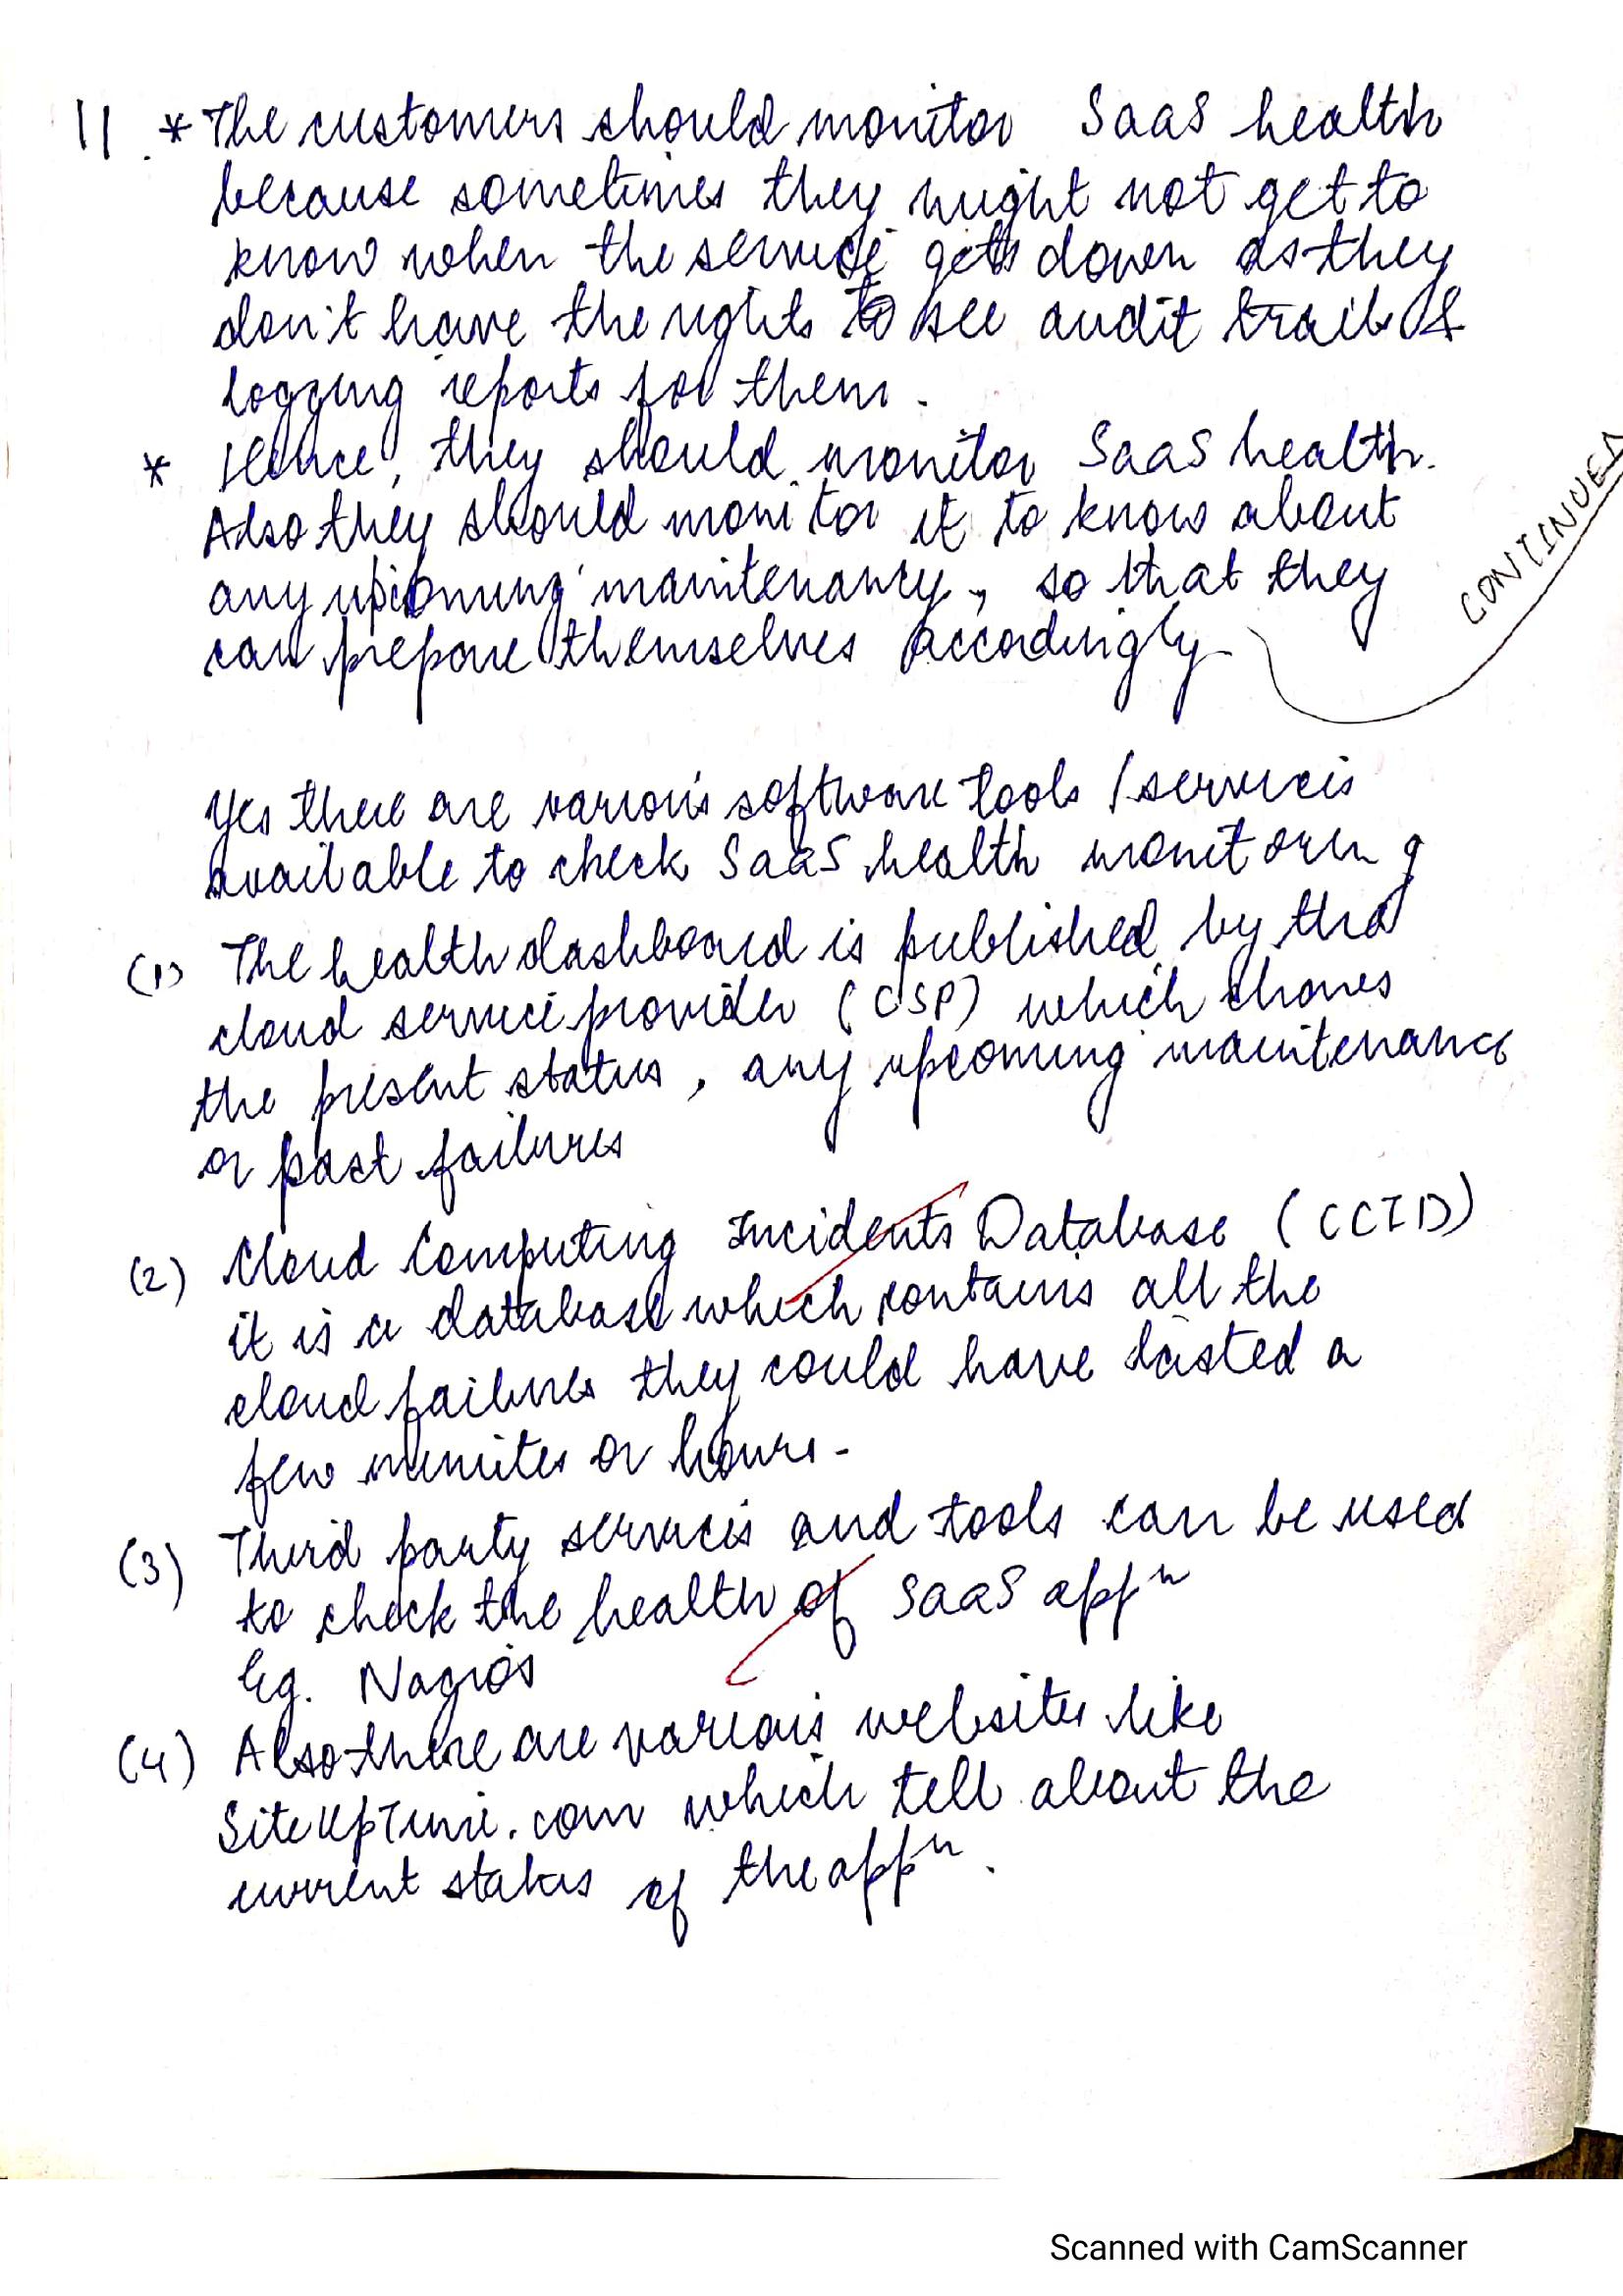 11. * The customers should monitor SaaS health
because sometimes they might not get to
know when the service gets down as they
don't have the rights to see audit trails &
logging reports for them.
* Hence, they should monitor SaaS health.
Also they should monitor it to know about
any upcoming maintenancy, so that they
can prepare themselves accordingly.
CONTINUED
Yes there are various software tools / services
available to check SaaS health monitoring
(1) The health dashboard is published by the
cloud service provider (CSP) which shows
the present status, any upcoming maintenance
or past failures
(2) Cloud Computing Incidents Database (CCID)
it is a database which contains all the
cloud failures they could have lasted a
few minutes or hours.
(3) Third party services and tools can be used
to check the health of SaaS appn
Eg. Nagios
(4) Also there are various websites like
SiteUpTime.com which tell about the
current status of the appn.
Scanned with CamScanner